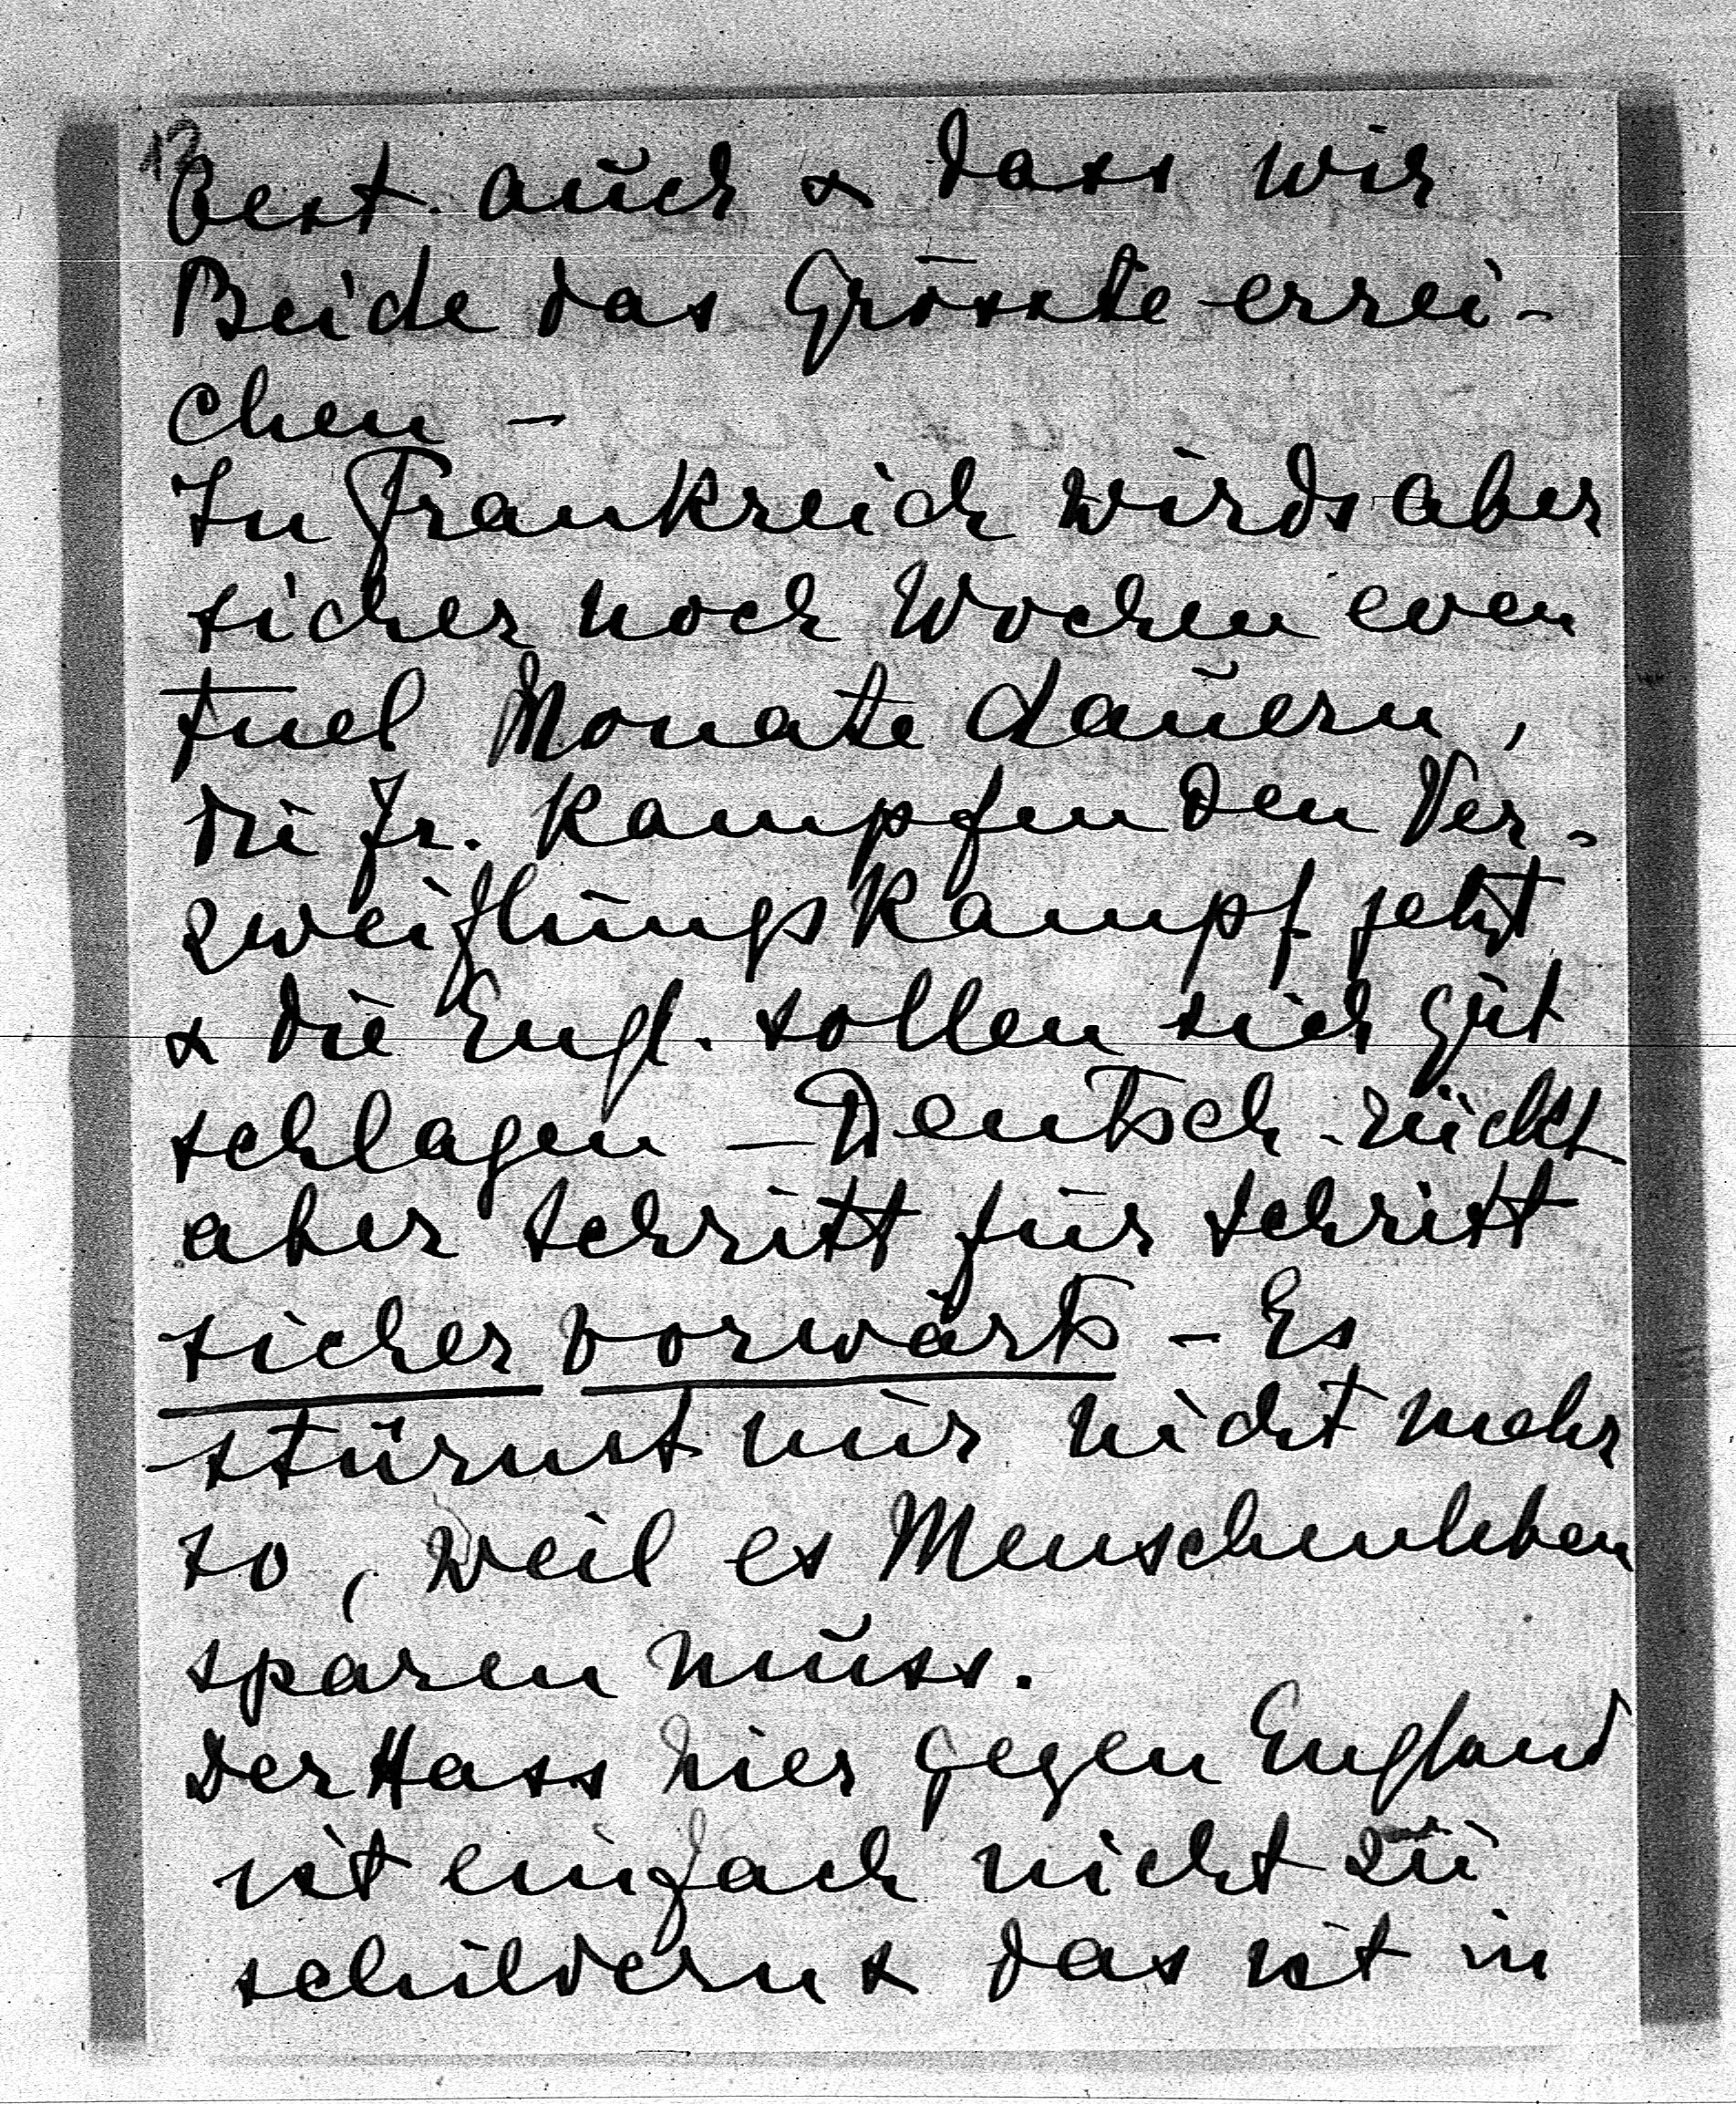 12
Oest. auch & dass wir
Beide das Grösste errei-
chen –
In Frankreich wirds aber
sicher noch Wochen even
tuel Monate dauern,
die Fr. kämpfen den Ver-
zweiflungskampf jetzt
& die Engl. sollen sich gut
schlagen – Deutsch. rückt
aber schritt für schritt
sicher vorwärts – Es
stürmt nur nicht mehr
so, weil es Menschenleben
sparen muss.
Der Hass hier gegen England
ist einfach nicht zu
schildern & das ist in